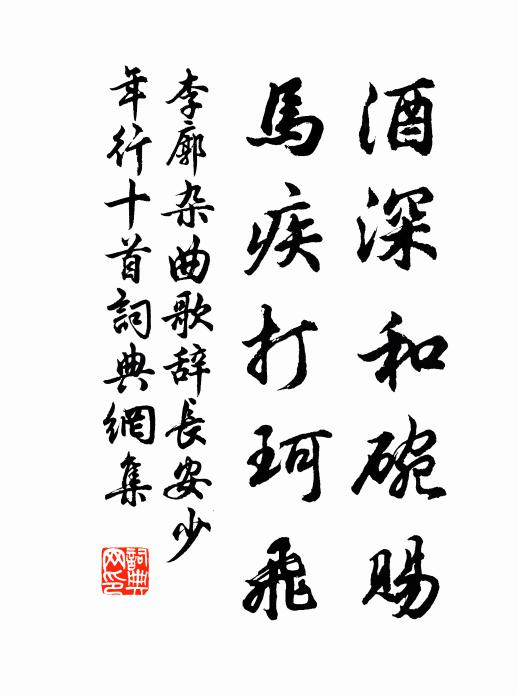 酒深和碗賜
馬疾打珂飛
李廓杂曲歌辞長安少
年行十首詞典網集
詞典
网印